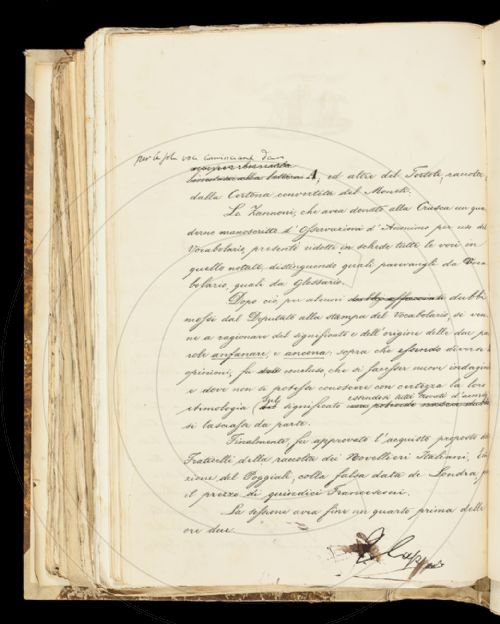 per le sole voci comincianti da
A, ed altri del Tortoli, raccolta
dalla Certona convertita del Moneti.
Lo Zannoni, che avea donato alla Crusca un qua
derno manoscritto d'Osservazioni d'Anonimo per uso del
Vocabolario, presentò ridotte in schede tutte le voci in
quello notate, distinguendo quali parevangli da Voca
bolario, quali da Glossario.
Dopo ciò per alcuni dubbi
mossi dal Deputato alla stampa del Vocabolario, si ven
ne a ragionare del significato e dell'origine delle due pa
role anfanare, e ancona; sopra che essendo diverse
opinioni, fu concluso, che si facesser nuove indagini
e dove non si potesse conoscere con certezza la loro
etimologia sul significato
si lasciasse da parte.
Finalmente, fu approvato l'acquisto proposto da
Fraticelli della raccolta dei Novellieri Italiani, edi
zione del Poggiali, colla falsa data di Londra, per
il prezzo di quindici Francesconi.
La sessione avea fine un quarto prima delle
ore due.